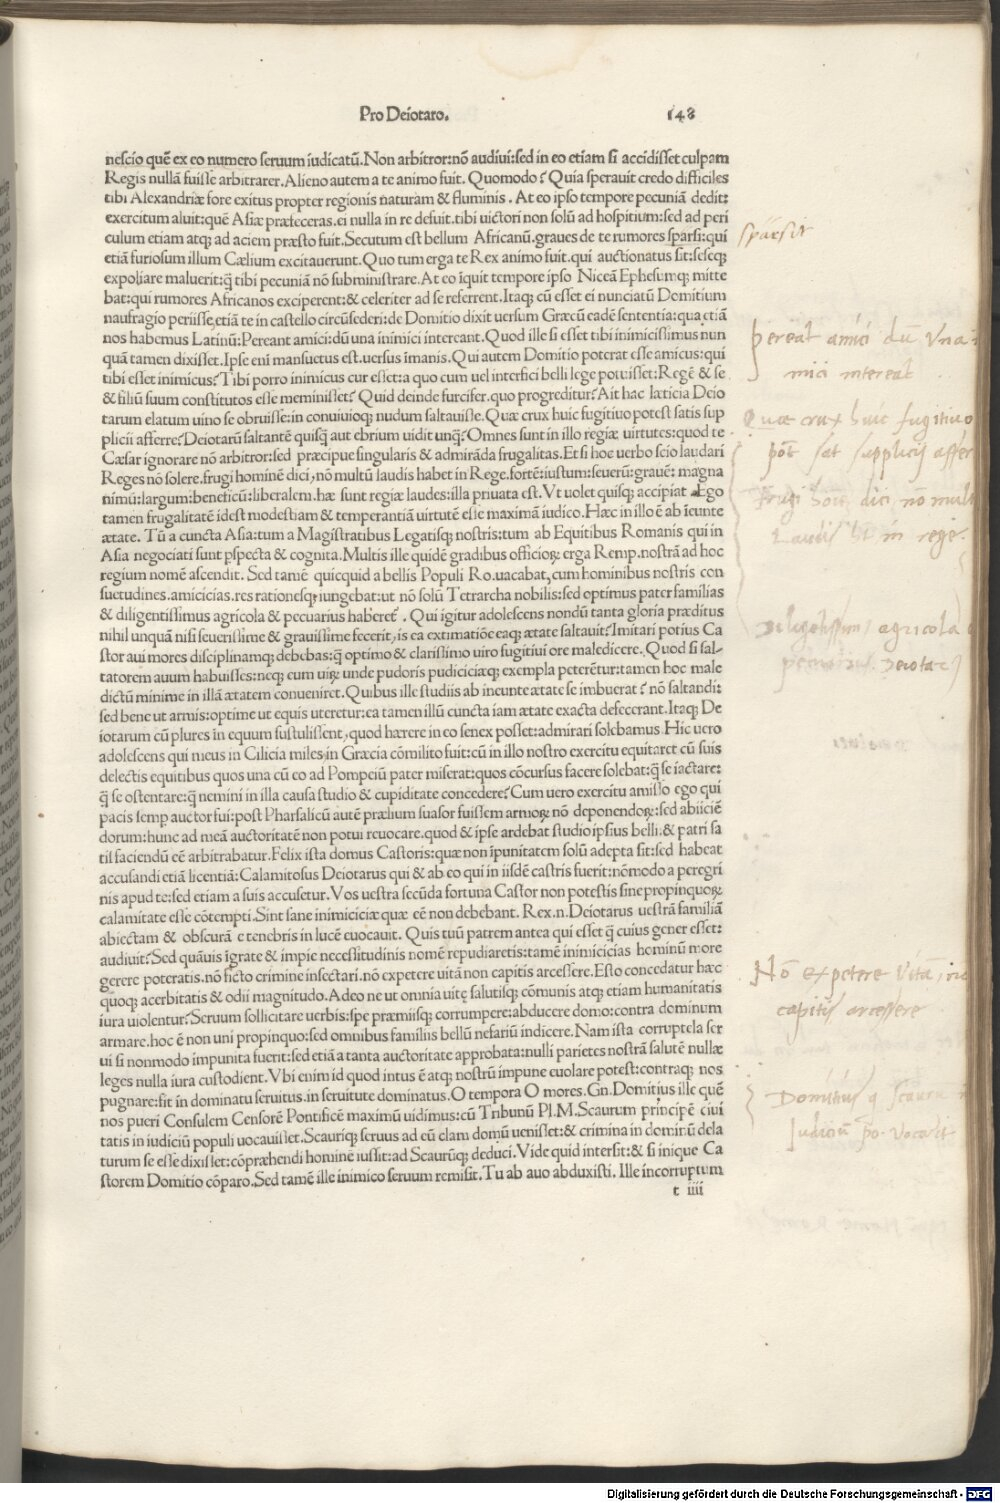 Pro Deiotaro. 148
nescio quē ex eo numero seruum iudicatū. Non arbitror: nō audiui: sed in eo etiam si accidisset culpam
Regis nullā fuisse arbitrarer. Alieno autem a te animo fuit. Quomodo? Quia sperauit credo difficiles
tibi Alexandriæ fore exitus propter regionis naturam & fluminis. At eo ipso tempore pecuniā dedit:
exercitum aluit: quē Asiæ præfeceras. ei nulla in re defuit. tibi uictori non solū ad hospitium: sed ad peri
culum etiam atq; ad aciem præsto fuit. Secutum est bellum Africanū. graues de te rumores sparsi: qui
etiā furiosum illum Cælium excitauerunt. Quo tum erga te Rex animo fuit. qui auctionatus sit: seseq;
expoliare maluerit: q̄ tibi pecuniā nō subministrare. At eo īquit tempore ipso Niceā Ephesumq; mitte
bat: qui rumores Africanos exciperent: & celeriter ad se referrent. Itaq; cū esset ei nunciatū Domitium
naufragio periisse, etiā te in castello circūsederi: de Domitio dixit uersum Græcū eadē sententia: qua etiā
nos habemus Latinū: Pereant amici: dū una inimici intereant. Quod ille si esset tibi inimicissimus nun
quā tamen dixisset. Ipse eni mansuetus est. uersus imanis. Qui autem Domitio poterat esse amicus: qui
tibi esset inimicus? Tibi porro inimicus cur esset: a quo cum uel interfici belli lege potuisset: Regē & se
& filiū suum constitutos esse meminisset? Quid deinde furcifer. quo progreditur? Ait hac lætitia Deio
tarum elatum uino se obruisse: in conuiuioq; nudum saltauisse. Quæ crux huic fugitiuo potest satis sup
plicii afferre? Deiotarū saltantē quisq̄ aut ebrium uidit unq̄? Omnes sunt in illo regiæ uirtutes: quod te
Cæsar ignorare nō arbitror: sed præcipue singularis & admirāda frugalitas. Et si hoc uerbo scio laudari
Reges nō solere. frugi hominē dici, nō multū laudis habet in Rege. fortē: iustum: seuerū: grauē: magna
nimū: largum: beneficū: liberalem. hæ sunt regiæ laudes: illa priuata est. Vt uolet quisq; accipiat. Ego
tamen frugalitatē idest modestiam & temperantiā uirtutē esse maximā iudico. Hæc in illo ē ab ieunte
ætate. Tū a cuncta Asia: tum a Magistratibus Legatisq; nostris: tum ab Equitibus Romanis qui in
Asia negociati sunt pspecta & cognita. Multis ille quidē gradibus officioꝝ erga Remp. nostrā ad hoc
regium nomē ascendit. Sed tamē quicquid a bellis Populi Ro. uacabat, cum hominibus nostris con
suetudines. amicicias. res rationesq; iungebat: ut nō solū Tetrarcha nobilis: sed optimus pater familias
& diligentissimus agricola & pecuarius haberet. Qui igitur adolescens nondū tanta gloria præditus
nihil unquā nisi seuerissime & grauissime fecerit, is ea extimatiōe eaq; ætate saltauit? Imitari potius Ca
stor aui mores disciplinamq; debebas: q̄ optimo & clarissimo uiro fugitiui ore maledicere. Quod si sal-
tatorem auum habuisses: neq; eum uiꝝ unde pudoris pudiciciæq; exempla peterētur: tamen hoc male
dictū minime in illā ætatem conueniret. Quibus ille studiis ab ineunte ætate se imbuerat? nō saltandi:
sed bene ut armis: optime ut equis uteretur: ea tamen illū cuncta iam ætate exacta defecerant. Itaq; De
iotarum cū plures in equum sustulissent, quod hærere in eo senex posset: admirari solebamus. Hic uero
adolescens qui meus in Cilicia miles, in Græcia cōmilito fuit: cū in illo nostro exercitu equitaret cū suis
delectis equitibus quos una cū eo ad Pompeiū pater miserat: quos cōcursus facere solebat: q̄ se iactare:
q̄ se ostentare: q̄ nemini in illa causa studio & cupiditate concedere? Cum uero exercitu amisso ego qui
pacis semp auctor fui: post Pharsalicū autē prælium suasor fuissem armoꝝ nō deponendoꝝ: sed abiiciē
dorum: hunc ad meā auctoritatē non potui reuocare. quod & ipse ardebat studio ipsius belli. & patri sa
tis faciendū eē arbitrabatur. Felix ista domus Castoris: quæ non īpunitatem solū adepta sit: sed habeat
accusandi etiā licentiā: Calamitosus Deiotarus qui & ab eo qui in iisdē castris fuerit: nōmodo a peregri
nis apud te: sed etiam a suis accusetur. Vos uestra secūda fortuna Castor non potestis sine propinquoꝝ
calamitate esse cōtempti. Sint sane inimiciciæ quæ eē non debebant. Rex. n. Deiotarus uestrā familiā
abiectam & obscurā e tenebris in lucē euocauit. Quis tuū patrem antea qui esset q̄ cuius gener esset:
audiuit? Sed quāuis īgrate & impie necessitudinis nomē repudiaretis: tamē inimicicias hominū more
gerere poteratis. nō ficto crimine insectari. nō expetere uitā non capitis arcessere. Esto concedatur hæc
quoq; acerbitatis & odii magnitudo. Adeo ne ut omnia uitę salutisq; cōmunis atq; etiam humanitatis
iura uiolentur? Seruum sollicitare uerbis: spe præmiisq; corrumpere: abducere domo: contra dominum
armare. hoc ē non uni propinquo: sed omnibus familiis bellū nefariū indicere. Nam ista corruptela ser
ui si nonmodo impunita fuerit: sed etiā a tanta auctoritate approbata: nulli parietes nostrā salutē nullæ
leges nulla iura custodient. Vbi enim id quod intus ē atq; nostrū impune euolare potest: contraq; nos
pugnare: fit in dominatu seruitus. in seruitute dominatus. O tempora O mores. Gn. Domitius ille quē
nos pueri Consulem Censorē Pontificē maximū uidimus: cū Tribunū Pl. M. Scaurum principē ciui
tatis in iudiciū populi uocauisset. Scauriq; seruus ad eū clam domū uenisset: & crimina in dominū dela
turum se esse dixisset: cōpræhendi hominē iussit: ad Scaurūq; deduci. Vide quid intersit: & si inique Ca
storem Domitio cōparo. Sed tamē ille inimico seruum remisit. Tu ab auo abduxisti. Ille incorruptum
t iiii
sparsit
pereāt amici dū Vna i
mici intereāt
Quæ crux huic fugitiuo
pōt sat supplicij affer
frugi hoīē dici nō mult
Laudis ht in rege.
agricola
Deiotar
Nō expetere Vitā, nō
capitis arcessere
Domitius q Scaurū
Judiciū po. Vocauit
Digitalisierung gefördert durch die Deutsche Forschungsgemeinschaft - DFG